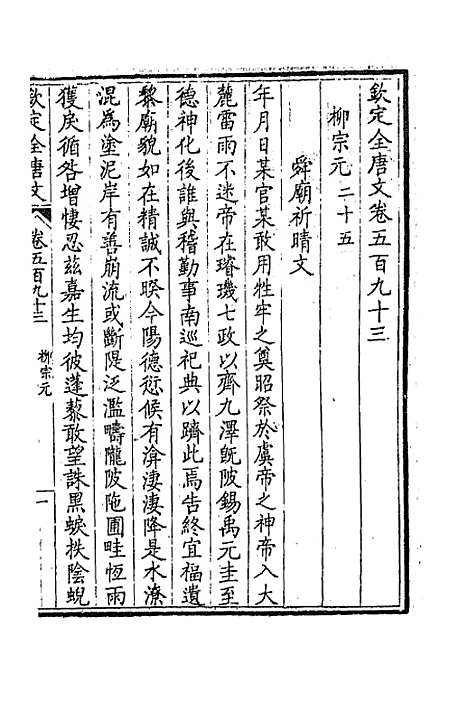 欽定全唐文卷五百九十三
柳宗元二十五
舜廟祈晴文
年月日某官某敢用牲牢之奠昭祭於虞帝之神帝入大
麓雷雨不迷帝在璿璣七政以齊九澤旣陂錫禹元圭至
德神化後誰與稽勤事南巡祀典以躋此焉告終宜福遺
黎廟貌如在精誠不暌今陽德愆候有渰淒淒降是水潦
混為塗泥岸有善崩流或斷隄泛濫疇隴陂陁圃畦恆雨
獲戾循咎增悽忍茲嘉生均彼蓬藜敢望誅黑蜧抶陰蜺
欽定全唐文
卷五百九十三
柳宗元
一